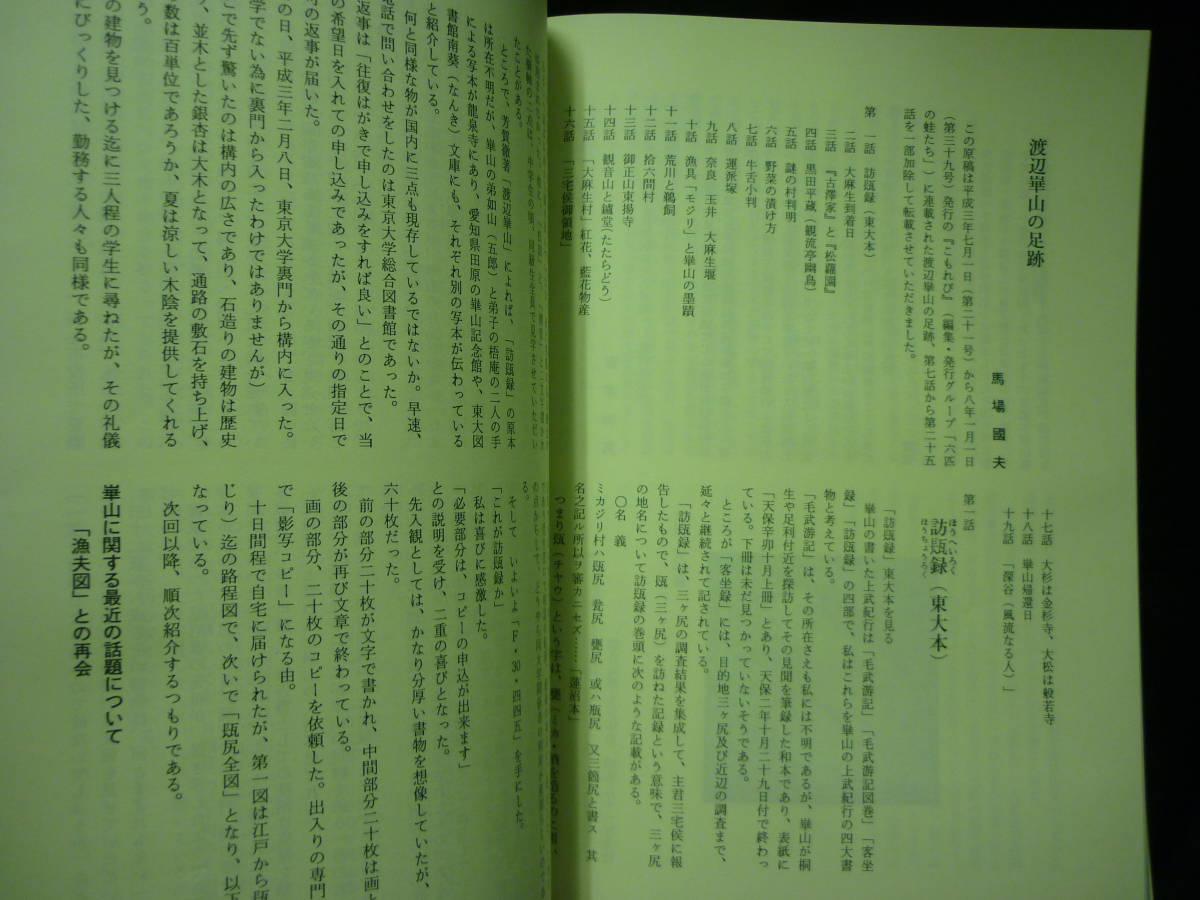 渡辺崋山の足跡
馬場國夫
この原稿は平成三年七月一日(第二十一号)から八年一月一日
(第三十九号)発行の『こもれび』(編集・発行グループ「六匹
の蛙たち」)に連載された渡辺崋山の足跡、第七話から第二十五
話を一部加除して転載させていただきました。
第一話 訪瓺録(東大本)
二話 大麻生到着日
三話 『古澤家』と『松蘿園』
四話 黒田平蔵(観流亭幽鳥)
五話 謎の村判明
六話 野菜の漬け方
七話 牛舌小判
八話 運派塚
九話 奈良 玉井 大麻生堰
十話 漁具「モジリ」と崋山の墨蹟
十一話 荒川と鵜飼
十二話 拾六間村
十三話 御正山東揚寺
十四話 観音山と鑪堂(たたらどう)
十五話 「大麻生村」紅花、藍花物産
十六話 「三宅侯御領地」
十七話 大杉は金杉寺、大松は般若寺
十八話 崋山帰還日
十九話 「深谷(風流なる人)」
第一話
訪瓺録(東大本)
ほうへいろく
ほうちょうろく
「訪瓺録」東大本を見る
崋山の書いた上武紀行は「毛武游記」「毛武游記図巻」「客坐
録」「訪瓺録」の四部で、私はこれらを崋山の上武紀行の四大書
物と考えている。
「毛武游記」は、その所在さえも私には不明であるが、崋山が桐
生や足利付近を探訪してその見聞を筆録した和本であり、表紙に
「天保辛卯十月上冊」とあり、天保二年十月二十九日付で終わっ
ている。下冊は未だ見つかっていないそうである。
ところが「客坐録」には、目的地三ヶ尻及び近辺の調査まで、
延々と継続されて記されている。
「訪瓺録」は、三ヶ尻の調査結果を集成して、主君三宅侯に報
告したもので、瓺(三ヶ尻)を訪ねた記録という意味で、三ヶ尻
の地名について訪瓺録の巻頭に次のような記載がある。
〇名義
ミカジリ村ハ瓺尻 瓮尻 甕尻 或ハ瓶尻 又三箇尻と書ス 其
名之記ル所以ヲ審カニセズ……「蓮沼本」
つまり瓺(チヤウ)という字は、
ところで、芳賀徹著「渡辺崋山」によれば、「訪瓺録」の原本
は所在不明だが、崋山の弟如山(五郎)と弟子の梧庵の二人の手
による写本が龍泉寺にあり、愛知県田原の崋山記念館や、東大図
書館南葵(なんき)文庫にも、それぞれ別の写本が伝わっている
と紹介している。
何と同様な物が国内に三点も現存しているではないか。早速、
電話で問い合わせをしたのは東京大学総合図書館であった。
返事は「往復はがきで申し込みをすれば良い」とのことで、当
の希望日を入れての申し込みであったが、その通りの指定日で
の返事が届いた。
の日、平成三年二月八日、東京大学裏門から構内に入った。
学でない為に裏門から入ったわけではありませんが)
こで先ず驚いたのは構内の広さであり、石造りの建物は歴史
、並木とした銀杏は大木となって、通路の敷石を持ち上げ、
数は百単位であろうか、夏は涼しい木陰を提供してくれる
う。
の建物を見つける迄に三人程の学生に尋ねたが、その礼儀
にびっくりした、勤務する人々も同様である。
そして いよいよ「F・30・四四五」を手にした。
「これが訪瓺録か」
私は喜びに感激した。
「必要部分は、コピーの申込が出来ます」
との説明を受け、二重の喜びとなった。
先入観としては、かなり分厚い書物を想像していたが、
六十枚だった。
前の部分二十枚が文字で書かれ、中間部分二十枚は画と
後の部分が再び文章で終わっている。
画の部分、二十枚のコピーを依頼した。出入りの専門
で「影写コピー」になる由。
十日間程で自宅に届けられたが、第一図は江戸から瓺
じり)迄の路程図で、次いで「瓺尻全図」となり、以下
なっている。
次回以降、順次紹介するつもりである。
崋山に関する最近の話題について
「漁夫図」との再会